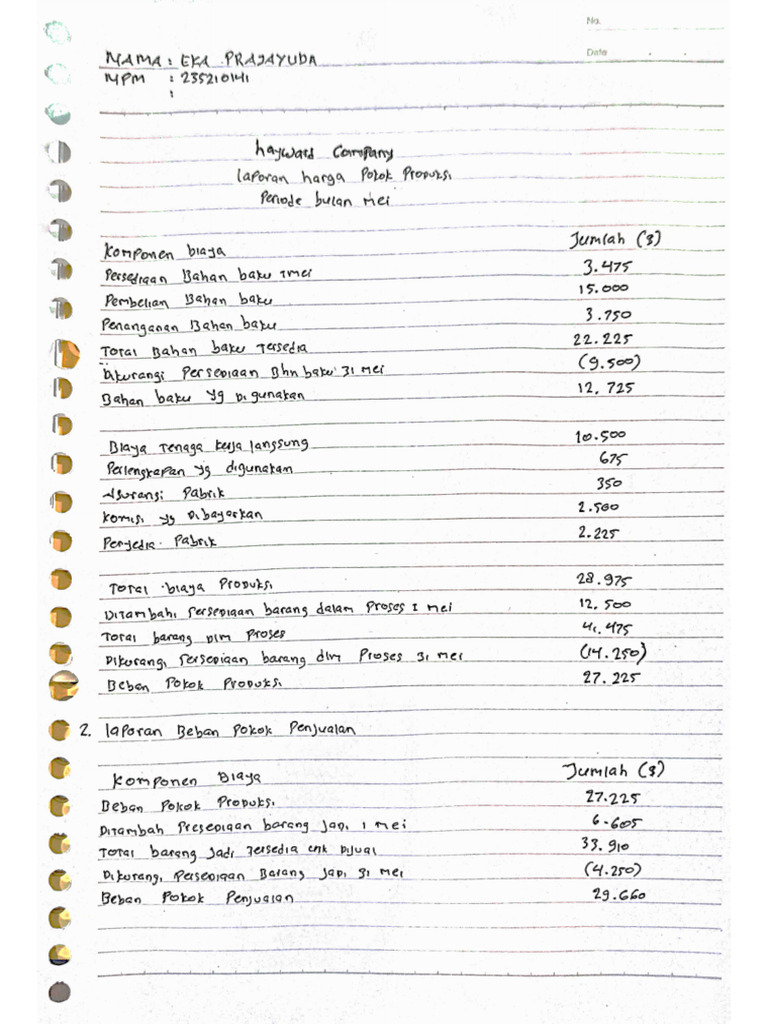 No.
Date . .
NAMA : EKA PRAJAYUDA
NPM : 235210141
:
hayward Company
laporan harga Pokok Produksi
Periode bulan mei
Komponen biaya Jumlah ($)
Persediaan Bahan baku 1 mei 3.475
Pembelian Bahan baku 15.000
Penanganan Bahan baku 3.750
Total Bahan baku Tersedia 22.225
Dikurangi Persediaan Bhn baku 31 mei (9.500)
Bahan baku yg Digunakan 12.725
Biaya Tenaga kerja langsung 10.500
Perlengkapan yg digunakan 675
Asuransi Pabrik 350
Komisi yg Dibayarkan 2.500
Penyedia Pabrik 2.225
Total biaya Produksi 28.975
Ditambah Persediaan barang dalam Proses 1 mei 12.500
Total barang dlm Proses 41.475
Dikurangi Persediaan barang dlm Proses 31 mei (14.250)
Beban Pokok Produksi 27.225
2. laporan Beban Pokok Penjualan
Komponen Biaya Jumlah ($)
Beban Pokok Produksi 27.225
Ditambah Presediaan barang Jadi 1 mei 6.605
Total barang Jadi Tersedia untk Dijual 33.910
Dikurangi Persediaan Barang Jadi 31 mei (4.250)
Beban Pokok Penjualan 29.660